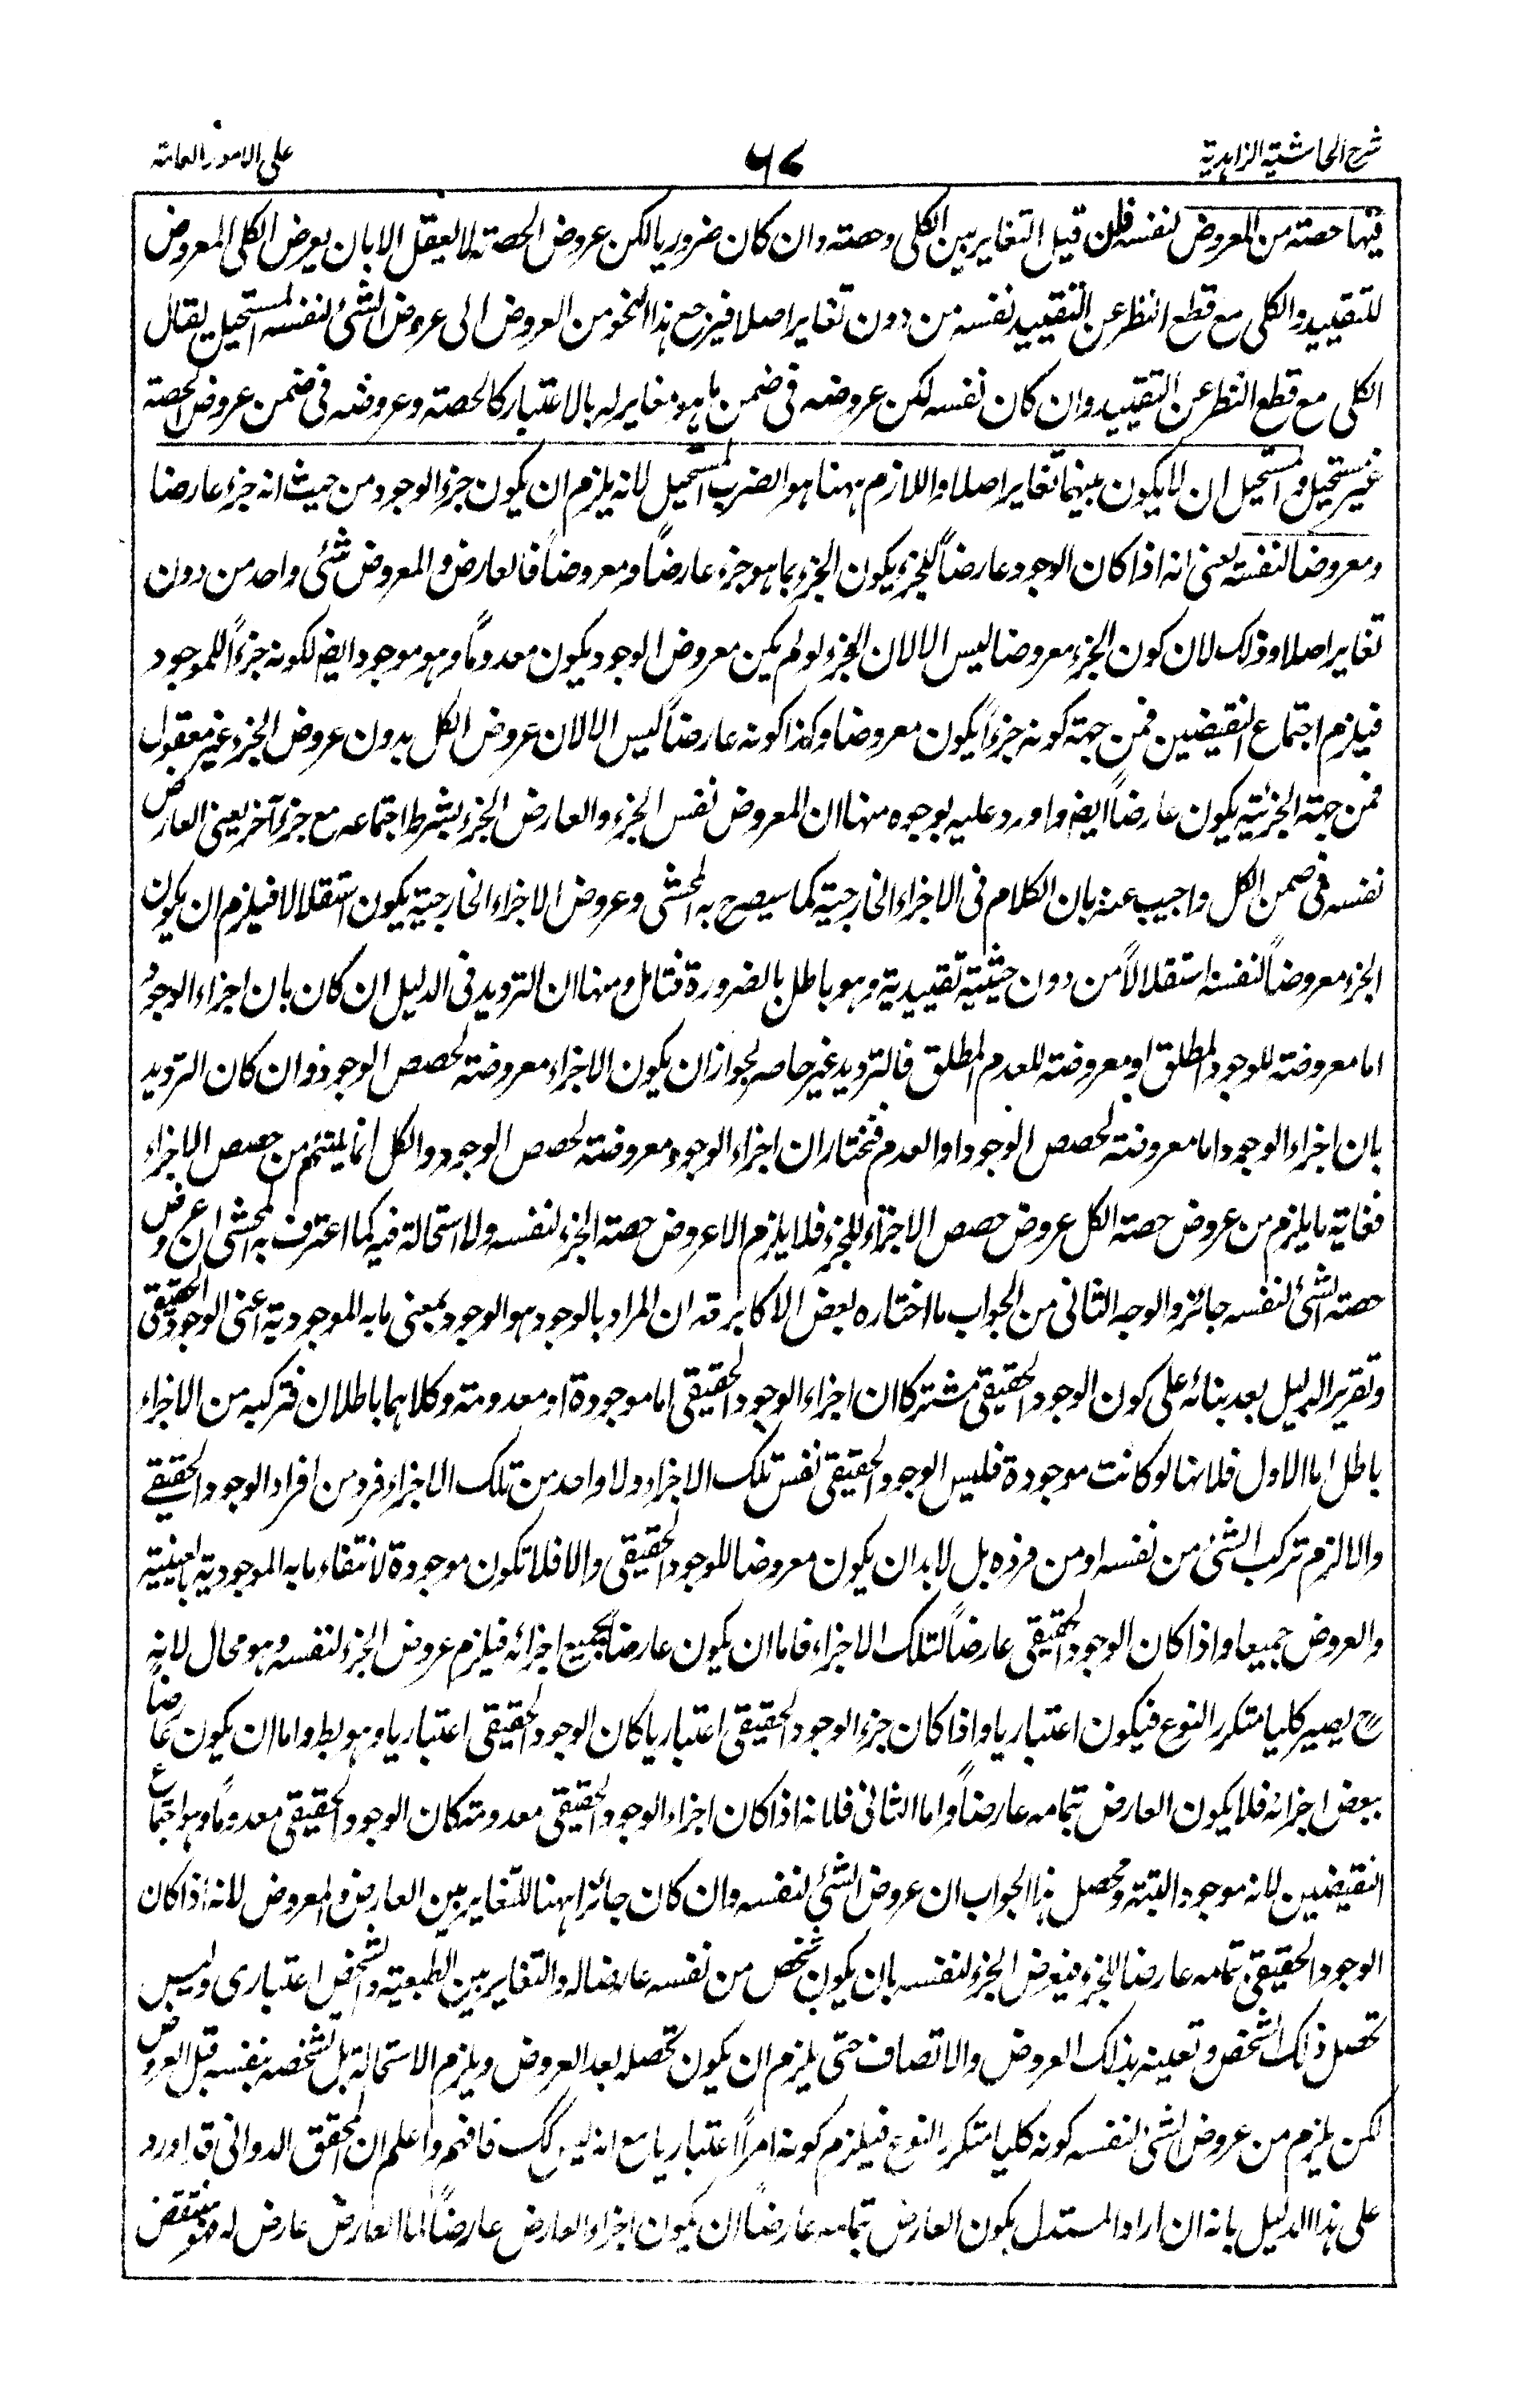 شرح الحاشية الزاهدية
٦٧
على الامور العامة
فيها حصته من المعروض لنفسه فان قيل التغاير بين الكلى وحصته وان كان ضروريا لكن عروض الحصة لا يعقل الا بان يعرض الكلى المعروض
للتقييد والكلى مع قطع النظر عن التقييد نفسه من دون تغاير اصلا فيرجع هذا النحو من العروض الى عروض الشئ لنفسه المستحيل يقال
الكلى مع قطع النظر عن التقييد وان كان نفسه لكن عروضه فى ضمن ما هو مغاير له بالاعتبار كالحصة وعروضه فى ضمن عروض الحصة
غير مستحيل والمستحيل ان لا يكون بينهما تغاير اصلا واللازم ههنا هو الضرب المستحيل لانه يلزم ان يكون جزء الوجود من حيث انه جزء عارضا
ومعروضا لنفسه يعنى انه اذا كان الوجود عارضاً للجزء يكون الجزء بما هو جزء عارضاً ومعروضاً فالعارض والمعروض شئ واحد من دون
تغاير اصلا وذلك لان كون الجزء معروضا ليس الا لان الجزء لو لم يكن معروض الوجود يكون معدوماً وهو موجود ايضا لكونه جزءاً للموجود
فيلزم اجتماع النقيضين فمن جهة كونه جزءاً يكون معروضا وكذا كونه عارضاً ليس الا لان عروض الكل بدون عروض الجزء غير معقول
فمن جهة الجزئية يكون عارضاً ايضا واورد عليه بوجوه منها ان المعروض نفس الجزء والعارض الجزء بشرط اجتماعه مع جزء آخر يعنى العارض
نفسه فى ضمن الكل واجيب عنه بان الكلام فى الاجزاء الخارجية كما سيصرح به المحشى وعروض الاجزاء الخارجية يكون استقلالا فيلزم ان يكون
الجزء معروضاً لنفسه استقلالاً من دون حيثية تقييدية وهو باطل بالضرورة فتامل ومنها ان الترديد فى الدليل ان كان بان اجزاء الوجود
اما معروضة للوجود المطلق او معروضة للعدم المطلق فالترديد غير حاصر لجواز ان يكون الاجزاء معروضة لحصص الوجود وان كان الترديد
بان اجزاء الوجود اما معروضة لحصص الوجود او العدم فنختار ان اجزاء الوجود معروضة لحصص الوجود والكل انما يلتئم من حصص الاجزاء
فغاية ما يلزم من عروض حصة الكل عروض حصص الاجزاء للجزء فلا يلزم الا عروض حصة الجزء لنفسه ولا استحالة فيه كما اعترف به المحشى ان عروض
حصة الشئ لنفسه جائز والوجه الثانى من الجواب ما اختاره بعض الاكابر قه ان المراد بالوجود هو الوجود بمعنى ما به الموجودية اعنى الوجود الحقيقى
وتقرير الدليل بعد بنائه على كون الوجود الحقيقى مشتركا ان اجزاء الوجود الحقيقى اما موجودة او معدومة وكلاهما باطلان فتركبه من الاجزاء
باطل اما الاول فلانها لو كانت موجودة فليس الوجود الحقيقى نفس تلك الاجزاء ولا واحد من تلك الاجزاء فرد من افراد الوجود الحقيقى
والا لزم تركب الشئ من نفسه او من فرده بل لابد ان يكون معروضا للوجود الحقيقى والا فلا تكون موجودة لانتفاء ما به الموجودية بالعينية
والعروض جميعا واذا كان الوجود الحقيقى عارضاً لتلك الاجزاء فاما ان يكون عارضاً بجميع اجزائه فيلزم عروض الجزء لنفسه وهو محال لانه
ح يصير كليا متكرر النوع فيكون اعتباريا واذا كان جزء الوجود الحقيقى اعتباريا كان الوجود الحقيقى اعتباريا وهو بط واما ان يكون عارضاً
ببعض اجزائه فلا يكون العارض بتمامه عارضاً واما الثانى فلانه اذا كان اجزاء الوجود الحقيقى معدومة كان الوجود الحقيقى معدوماً وهو اجتماع
النقيضين لانه موجود البتة ومحصل هذا الجواب ان عروض الشئ لنفسه وان كان جائزا ههنا للتغاير بين العارض والمعروض لانه اذا كان
الوجود الحقيقى بتمامه عارضا للجزء فيعرض الجزء لنفسه بان يكون شخص من نفسه عارضا له والتغاير بين الطبيعة والشخص اعتبارى وليس
تحصل ذلك الشخص وتعينه بذلك العروض والاتصاف حتى يلزم ان يكون تحصله بعد العروض ويلزم الاستحالة بل تشخصه بنفسه قبل العروض
لكن يلزم من عروض الشئ لنفسه كونه كليا متكرر النوع فيلزم كونه امراً اعتباريا مع انه ليس كك فافهم واعلم ان المحقق الدوانى قد اورد
على هذا الدليل بانه ان اراد المستدل بكون العارض بتمامه عارضاً ان يكون اجزاء العارض عارضاً لما العارض عارض له فهو منتقض